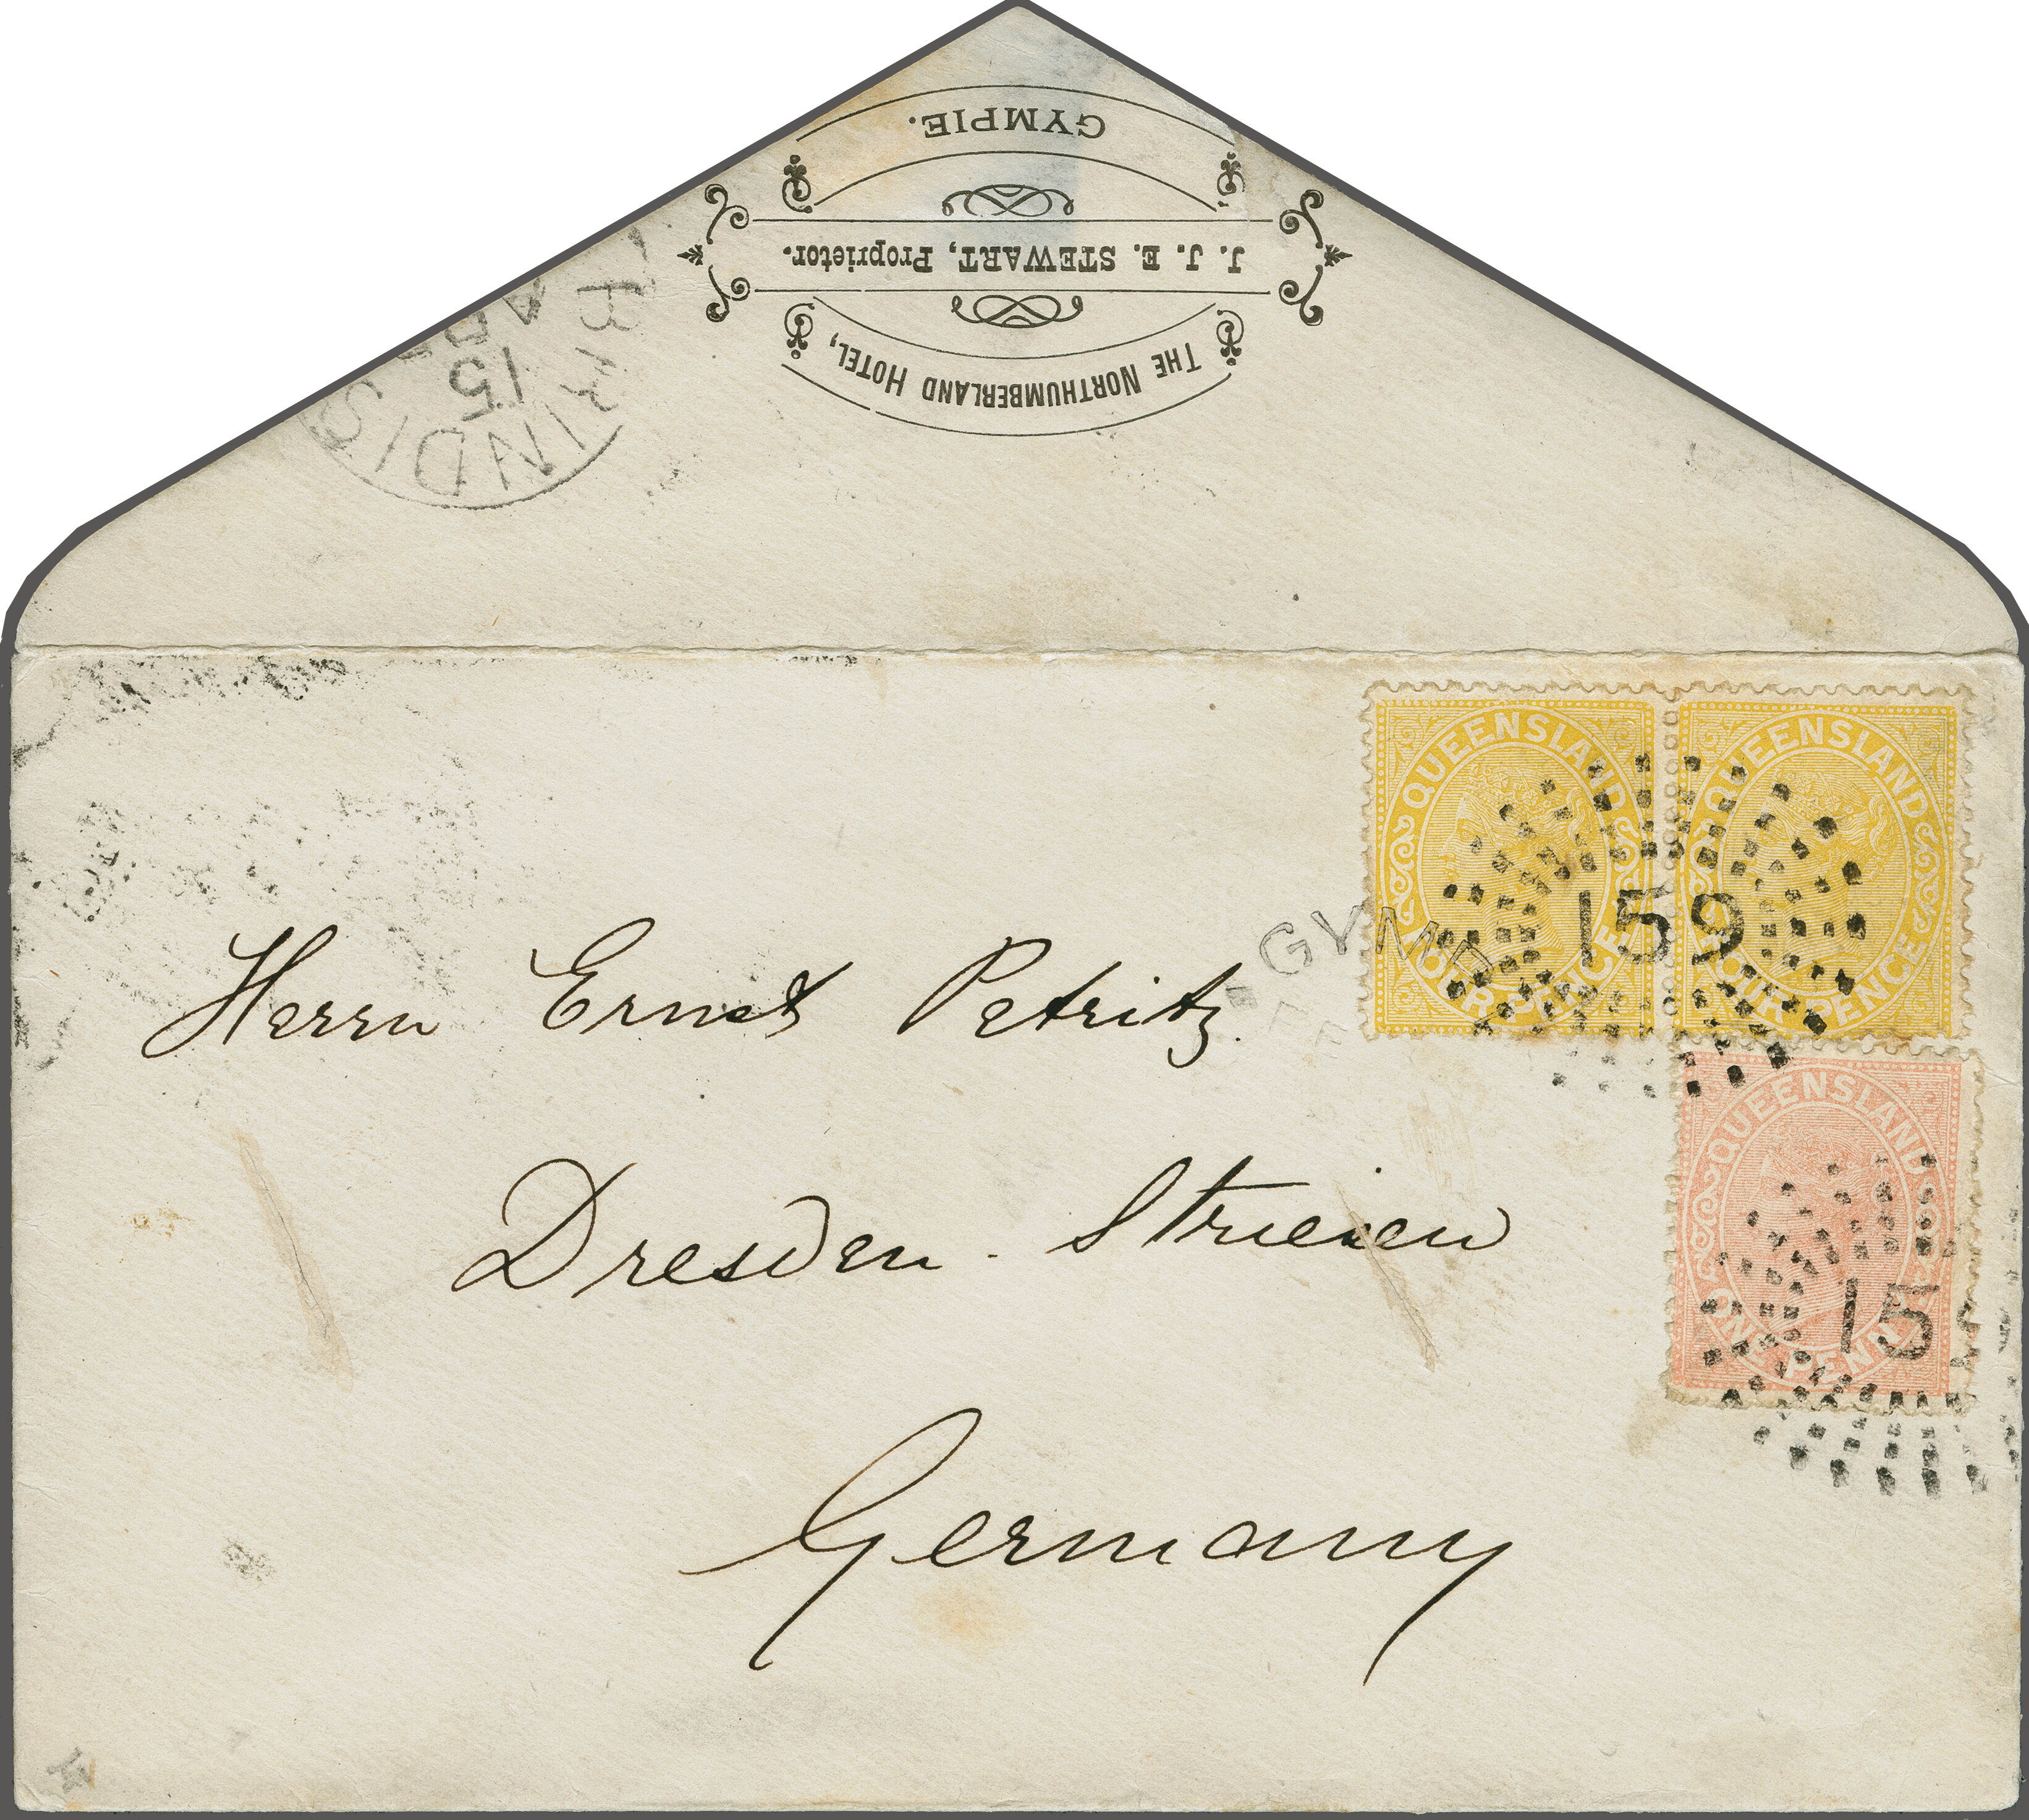 THE NORTHUMBERLAND HOTEL,
J. J. E. STEWART, Proprietor.
GYMPIE.
BRINDIS
15
QUEENSLAND
FOUR PENCE
QUEENSLAND
FOUR PENCE
159
GYMP
Herrn Ernst Petritz.
Dresden - Striesen
Germany
QUEENSLAND
ONE PENNY
15